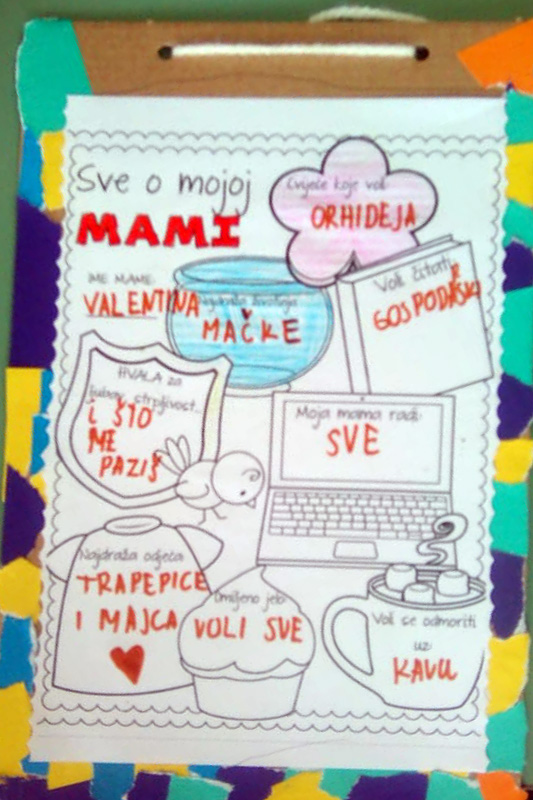 Sve o mojoj
MAMI
Cvijeće koje voli:
ORHIDEJA
IME MAME:
VALENTINA
Najdraža životinja
MAČKE
Voli čitati:
HVALA za
ljubav, strpljivost...
I ŠTO
ME
PAZIŠ
Moja mama radi:
SVE
Najdraža odjeća:
TRAPEPICE
I MAJCA
Omiljeno jelo
VOLI SVE
Voli se odmoriti
uz
KAVU